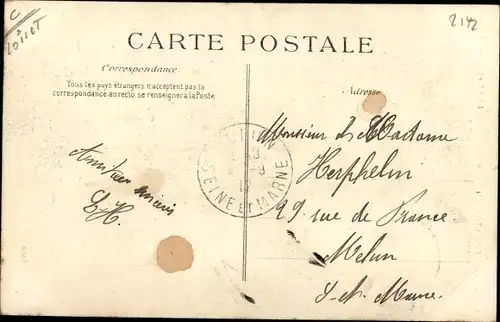 C
Loiret
2142
CARTE POSTALE
Correspondance
Tous les pays étrangers n'acceptent pas la
correspondance au recto, se renseigner à la Poste
Adresse
SEINE ET MARNE
Monsieur et Madame
Herphelin
29 rue de France
Melun
S. et Marne